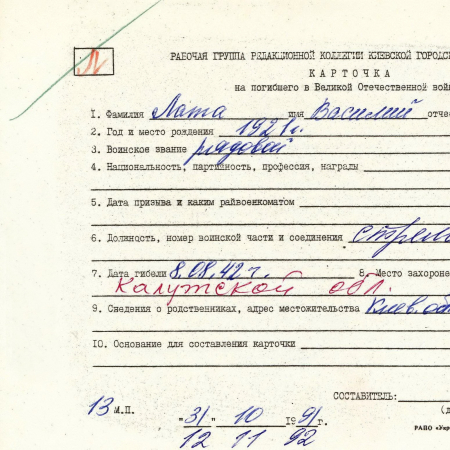 Л
РАБОЧАЯ ГРУППА РЕДАКЦИОННОЙ КОЛЛЕГИИ КИЕВСКОЙ ГОРОДС
КАРТОЧКА
на погибшего в Великой Отечественной вой
1. Фамилия Лата имя Василий отче
2. Год и место рождения 1921г.
3. Воинское звание рядовой
4. Национальность, партийность, профессия, награды
5. Дата призыва и каким райвоенкоматом
6. Должность, номер воинской части и соединения стрел
7. Дата гибели 8.08.42 г. 8. Место захороне
Калужской обл.
9. Сведения о родственниках, адрес местожительства Киев. об
10. Основание для составления карточки
СОСТАВИТЕЛЬ:
13 М.П. "31" 10 1991г. (д
12 11 92 РАПО «Укр